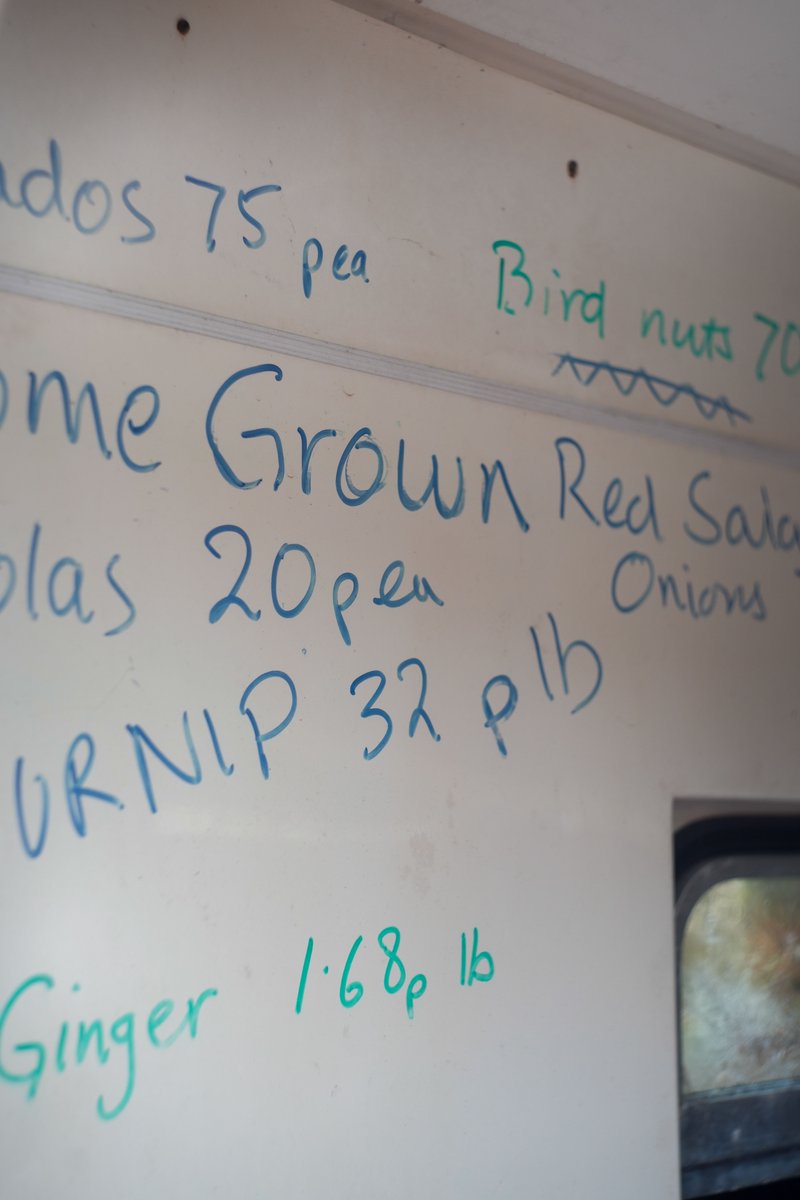 ados 75 pea
Bird nuts 70
ome Grown Red Sala
Onions
olas 20 pea
URNIP 32 p lb
Ginger 1.68p lb